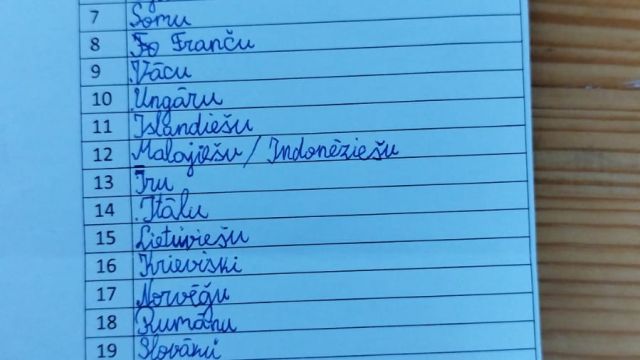 7 Somu
8 Franču
9 Vācu
10 Ungāru
11 Islandiešu
12 Malajiešu / Indonēziešu
13 Īru
14 Itāļu
15 Lietuviešu
16 Krieviski
17 Norvēģu
18 Rumāņu
19 Slovāku